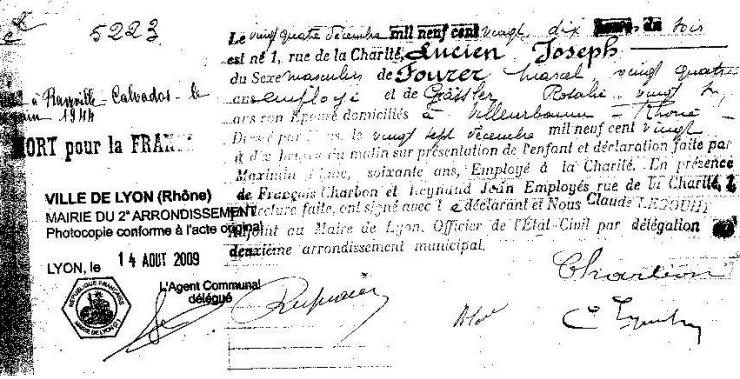 5223
à Ranville - Calvados - le
juin 1944
MORT pour la FRANCE
VILLE DE LYON (Rhône)
MAIRIE DU 2e ARRONDISSEMENT
Photocopie conforme à l'acte original
LYON, le 14 AOUT 2009
L'Agent Communal
délégué
REPUBLIQUE FRANCAISE
MAIRIE DE LYON
Le vingt quatre décembre mil neuf cent vingt, dix heures, du soir
est né 1, rue de la Charité, Lucien Joseph
du Sexe masculin de Fourer Marcel, vingt quatre
ans employé et de Rosalie, vingt
ans son Epouse domiciliés à Villeurbanne - Rhône -
Dressé par Nous, le vingt sept décembre mil neuf cent vingt
à dix heures du matin sur présentation de l'enfant et déclaration faite par
Maximin soixante ans, Employé à la Charité. En présence
de François Charbon et Reynaud Jean Employés rue de la Charité, 1
lecture faite, ont signé avec le déclarant et Nous Claude
Adjoint au Maire de Lyon, Officier de l'État-Civil par délégation
deuxième arrondissement municipal.
Charbon